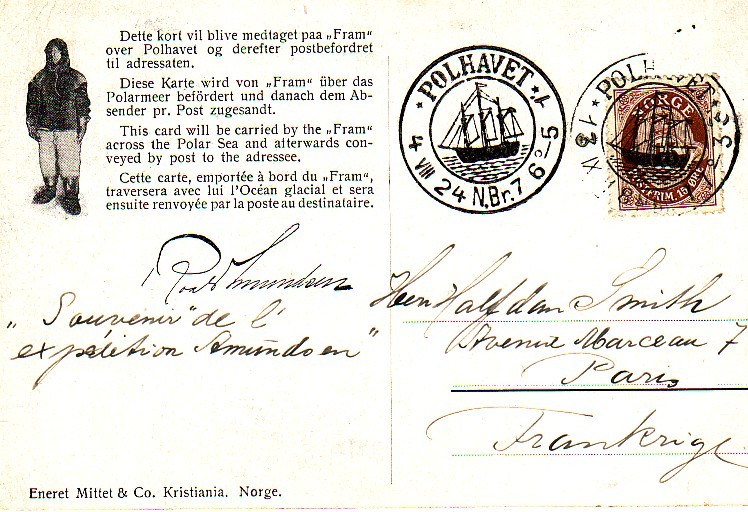 Dette kort vil blive medtaget paa „Fram"
over Polhavet og derefter postbefordret
til adressaten.
Diese Karte wird von „Fram" über das
Polarmeer befördert und danach dem Ab-
sender pr. Post zugesandt.
This card will be carried by the „Fram"
across the Polar Sea and afterwards con-
veyed by post to the adressee.
Cette carte, emportée à bord du „Fram",
traversera avec lui l'Océan glacial et sera
ensuite renvoyée par la poste au destinataire.
POLHAVET
4 VIII 24 N.Br.7 6°-5
POLHAVET
NORGE
FRIM. 15 ØRE
Roald Amundsen
„Souvenir" de l'
expédition Amundsen"
Herr Halfdan Smith
Avenue Marceau 7
Paris
Frankrige
Eneret Mittet & Co. Kristiania. Norge.